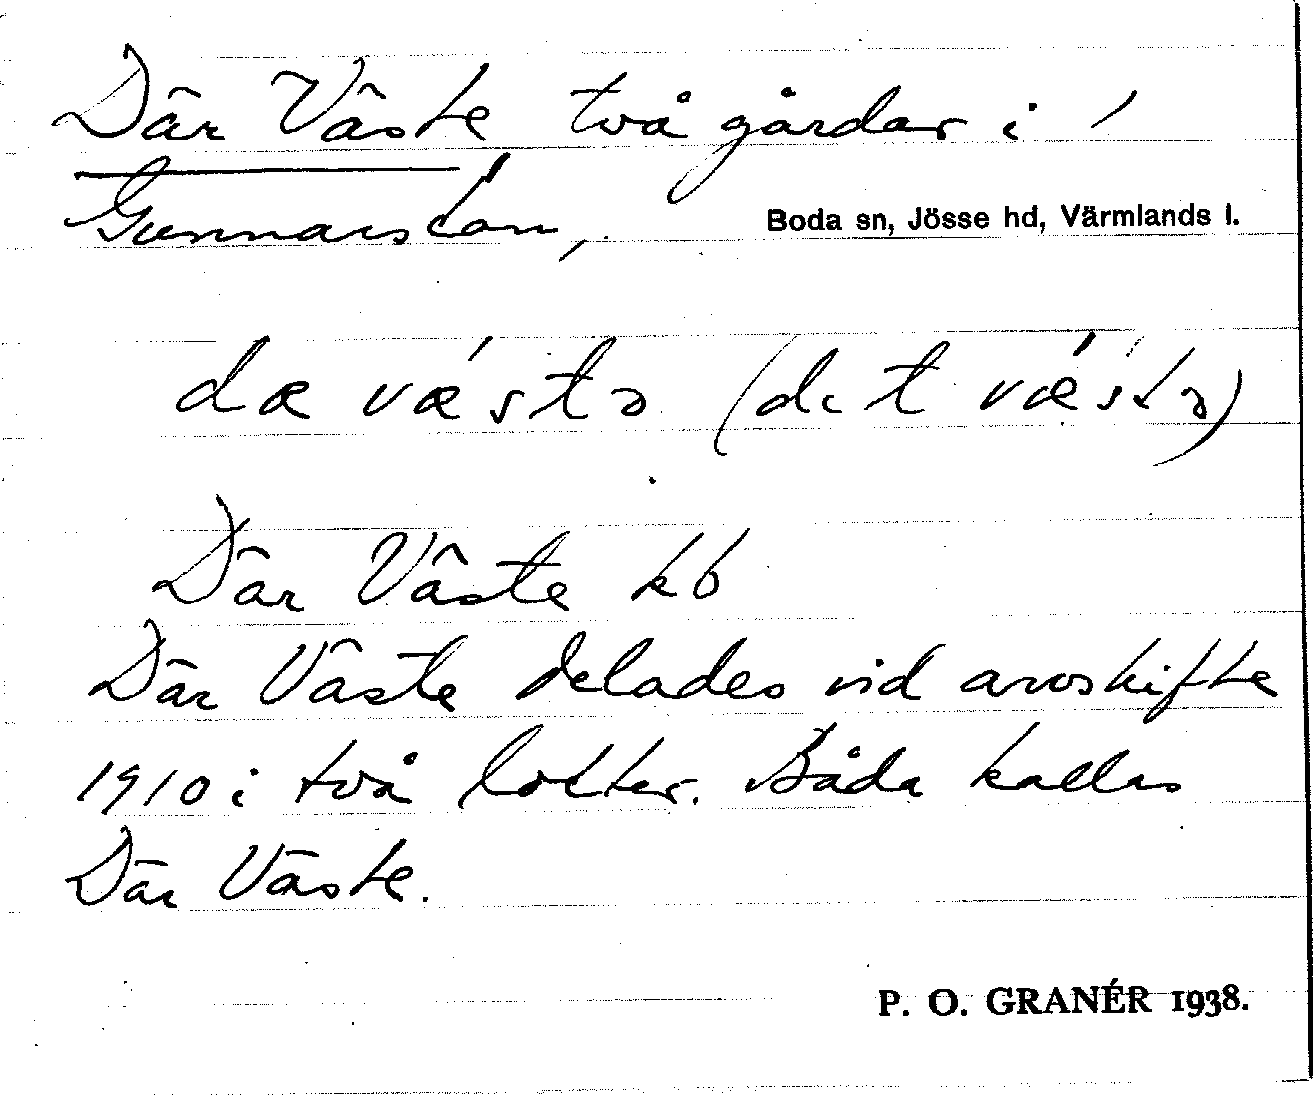 Där Väste två gårdar i
Gunnarskan,
Boda sn, Jösse hd, Värmlands l.
dæ væ´stə (det væ´stə)
Där Väste kb
Där Väste delades vid arvskifte
1910 i två lotter. Båda kallas
Där Väste.
P. O. GRANÉR 1938.